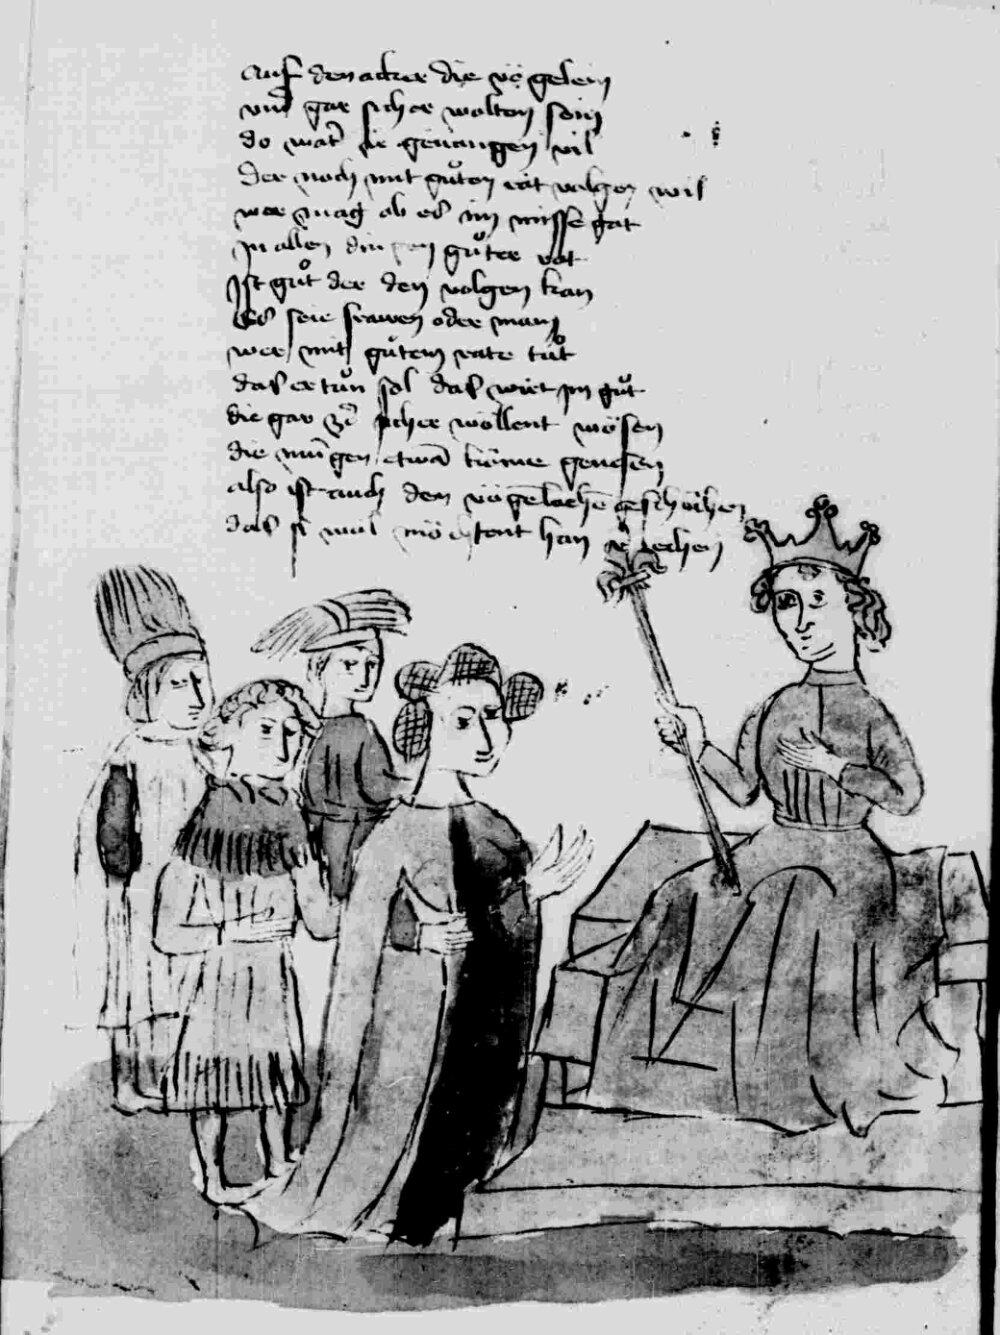 Auf den acker die vögelein
vnd gar sicher wolten sein
do wart ir geuangen vil
Der noch mit gůten rät volgen wil
wer mag ob es im missegat
In allen dingen gůter rat
Ist gůt der den volgen kan
Es seie frawen oder man
wer mit gůtem rate tůt
das er tůn sol das wirt im gůt
die gar ze sicher wöllent wösen
die mügen etwan kume genesen
also ist auch den vögelachen geschöhen
das si wol möchtent han